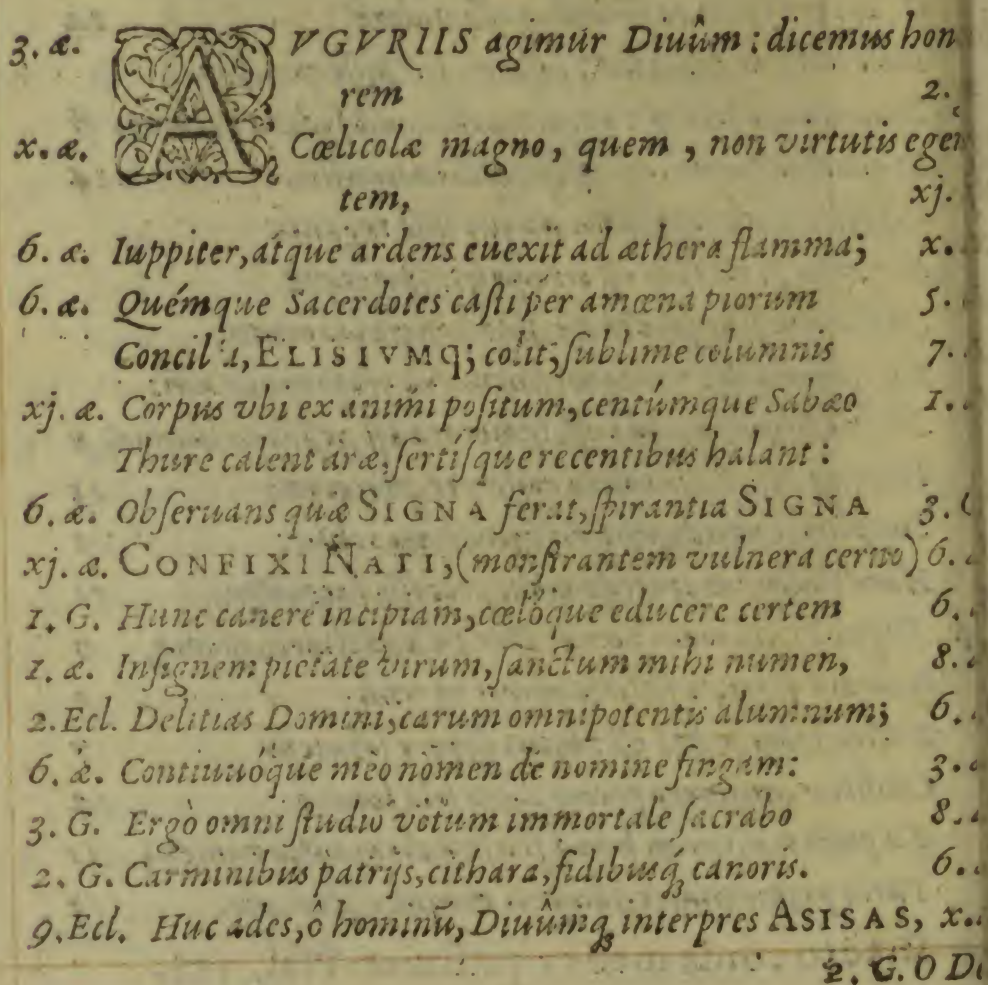 3. æ. AVGVRIIS agimur Diuûm : dicemus hon
rem 2.
x. æ. Cœlicolæ magno, quem, non virtutis egen
tem, xj.
6. æ. Iuppiter, atque ardens euexit ad æthera flamma; x.
6. æ. Quémque Sacerdotes casti per amœna piorum 5.
Concilia, ELISIVMq; colit; sublime columnis 7.
xj. æ. Corpus vbi exanimi positum, centúmque Sabæo 1.
Thure calent aræ, sertísque recentibus halant :
6. æ. Obseruans quæ SIGNA ferat, spirantia SIGNA 3. G
xj. æ. CONFIXI NATI, (monstrantem vulnera cerno) 6.
1. G. Hunc canere incipiam, cœlóque educere certem 6.
1. æ. Insignem pietate virum, sanctum mihi numen, 8.
2. Ecl. Delitias Domini, carum omnipotentis alumnum; 6.
6. æ. Continuóque meo nomen de nomine fingam: 3.
3. G. Ergò omni studio votum immortale sacrabo 8.
2. G. Carminibus patrijs, cithara, fidibusq́; canoris. 6.
9. Ecl. Huc ades, ô hominū, Diuûmq; interpres ASISAS, x.
2. G. O De